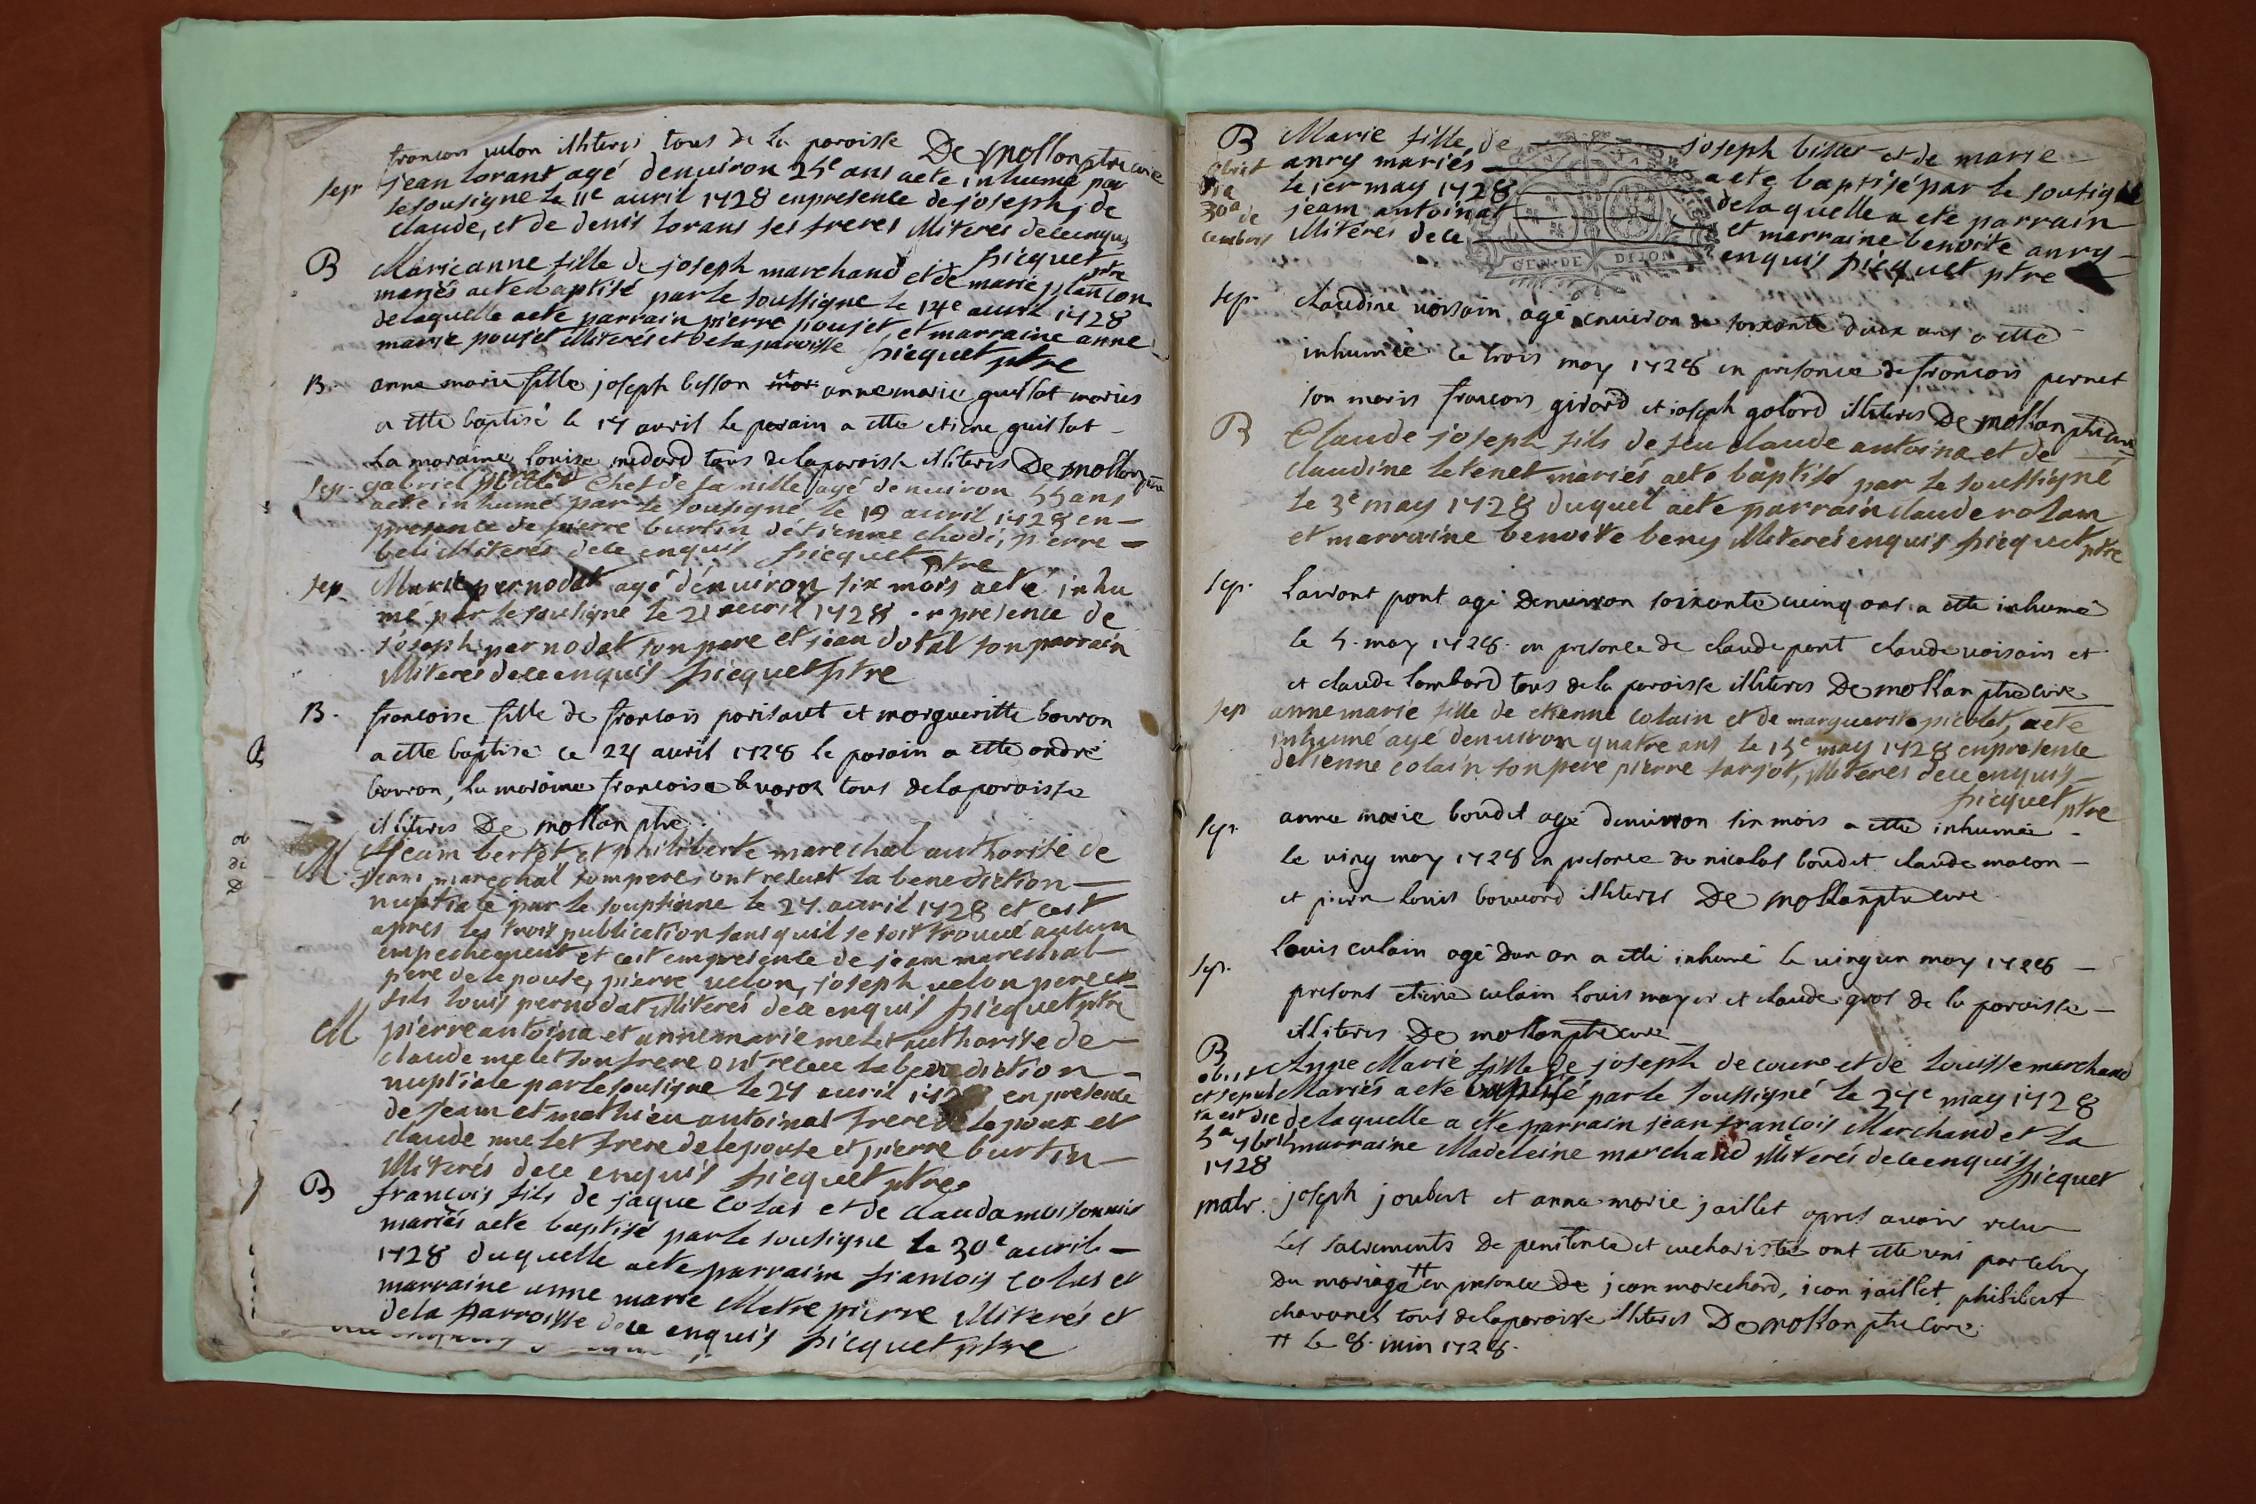 francois velon illiteres tous de la paroisse De mollan ptre curé
sep. jean lorant agé denuiron 25e ans a ete inhume par
le sousigne le 11e auril 1728 en presence de joseph, de
claude, et de denis lorans ses freres illiteres de ce enquis
picquet ptre
B Marieanne fille de joseph marchand et de marie plancon
mariés a ete baptisé par le soussigne le 14e auril 1728
de laquelle a ete parrain pierre poujet et marraine anne
marie poujet illiterés et de la paroisse picquet ptre
B. anne marie fille joseph besson et anne marie guillot mariés
a etté baptisé le 17 avril le parain a etté etiene guillot
la maraine louise medard tous de la paroisse illiteres De mollan ptre
sep. gabriel chef de famille agé denuiron 55 ans
a ete inhumé par le sousigné le 19 auril 1728 en
presence de pierre burtin détienne chodé, pierre
beli illiterés de ce enquis picquet ptre
sep Marie pernodat agé denuiron six mois a eté inhu
mé par le sousigné le 21 auril 1728 en presence de
joseph pernodat son pere et jean dotal son parrain
illiteres de ce enquis picquet ptre
B. francoise fille de francois parisaut et margueritte bouron
a etté baptisé ce 24 auril 1728 le parain a etté andré
bouron, la maraine francoise tous de la paroisse
illiteres De mollan ptre
M. jeam bertet et philiberte marechal authorisé de
jean marechal som pere, ont reçeut la benediction
nuptiale par le 27 auril 1728 et cest
apres les trois publication sans quil se soit trouué aucun
empechement et cest em presence de jeam marechal
pere de lepouse, pierre uelon, joseph uelon pere et
fils louis pernodat illiterés de ce enquis picquet ptre
M pierre antoina et anne marie melet authorisé de
claude melet son frere ont receu la benediction
nuptiale par le sousigne le 27 auril 1728 en presence
de jeam et mathieu antoinat frere de lepoux et
claude melet frere de lepouse et pierre burtin
illiterés de ce enquis picquet ptre
B francois fils de jaque colas et de clauda moissonnier
mariés a ete baptisé par le sousigne le 30e auril
1728 duquelle a ete parrain francois colas et
marraine anne marie Metrepierre illiterés et
de la parroisse de ce enquis picquet ptre
B Marie fille de joseph et de marie
anry mariés a ete baptisé par le sousigné
le 1er may 1728 de laquelle a ete parrain
jeam antoinat et marraine benoite anry
illiteres de ce enquis picquet ptre
30a de
cembris
GEN. DE DIJON
sep. claudine voisain agé enuiron de soixante deux ans a etté
inhumée ce trois may 1728 en presence de francois pernet
son maris francois girard et joseph golard illiteres De mollan ptre curé
B Claude joseph fils de feu claude antoina et de
claudine letenet mariés a ete baptisé par le soussigné
le 3e may 1728 duquel a ete parrain claude rolam
et marraine benoite beny illiterés enquis picquet ptre
sep. laurant pont agé denuiron soixante cuinq ans a etté inhumé
le 5. may 1728. en presence de claude pont claude uoisain et
et claude lombard tous de la paroisse illiteres De mollan ptre cure
sep anne marie fille de etienne colain et de marguerite picolet, a ete
inhumé agé denuiron quatre ans le 15e may 1728 en presence
detienne colain son pere pierre farjot, illiteres de ce enquis
picquet ptre
sep. anne marie boudet agé denuiron six mois a etté inhumée
le ving may 1728 en presence de nicolas boudet claude macon
et piere louis bouuard illiteres De mollan ptre cure
sep. louis culain agé dun an a etté inhumé le uingun may 1728
presens etiene culain louis mayer et claude gros de la paroisse
illiteres De mollan ptre cure
B Anne Marie fille de joseph decoure et de Louisse marchand
obiit et sepul Mariés a ete baptisé par le soussigné le 24e may 1728
ta est die de laquelle a ete parrain jean francois Marchand et la
5a 7bris marraine Madeleine marchand illiterés de ce enquis
1728 picquet
mabr. joseph joubert et anne marie jaillet apres auoir receu
les sacrements de penitence et eucharistie ont etté uni par celuy
du mariage # en presence de jean marechard, jean jaillet, philibert
chavanel tous de la paroisse illiteres De mollan ptre cure
# le 8. iuin 1728.